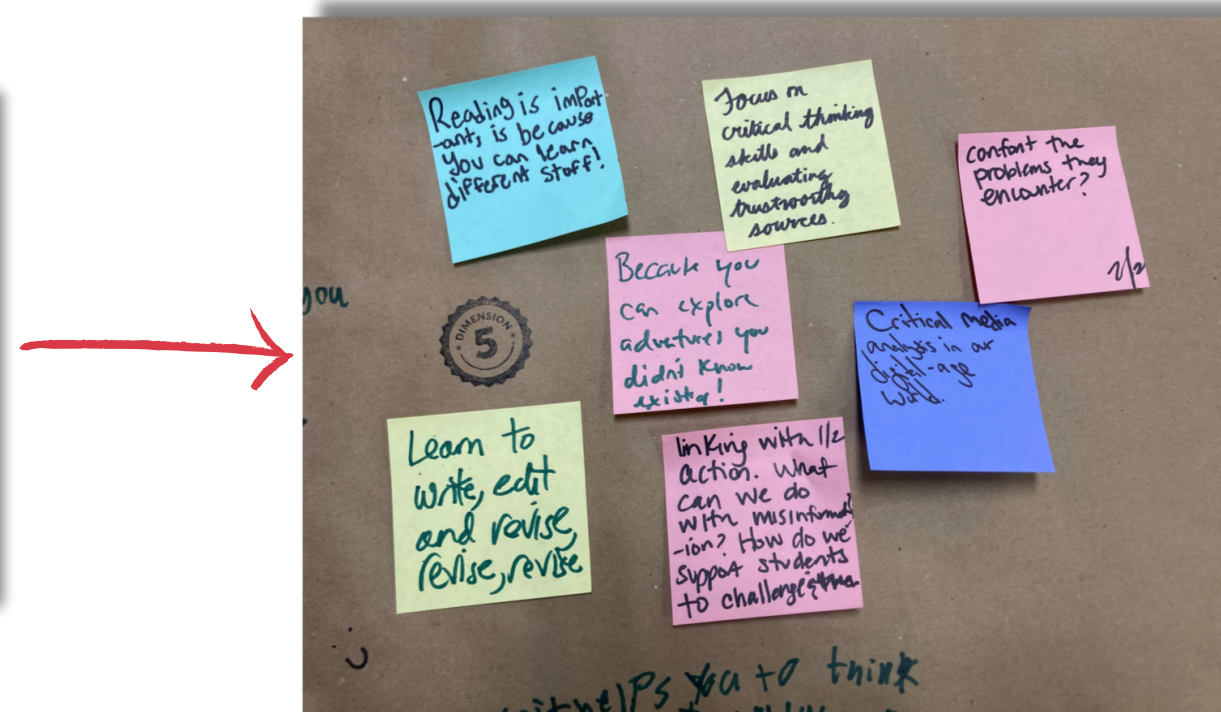 Reading is import
-ant, is because
you can learn
different stuff!
Focus on
critical thinking
skills and
evaluating
trustworthy
sources.
confont the
problems they
encounter?
2/2
Because you
can explore
adventures you
didn't know
existed!
Critical media
analysis in our
digital-age
world.
you
DIMENSION
5
Learn to
write, edit
and revise,
revise, revise
linking with 1/2
action. What
can we do
with misinformat
-ion? How do we
support students
to challenge &
helps you to think